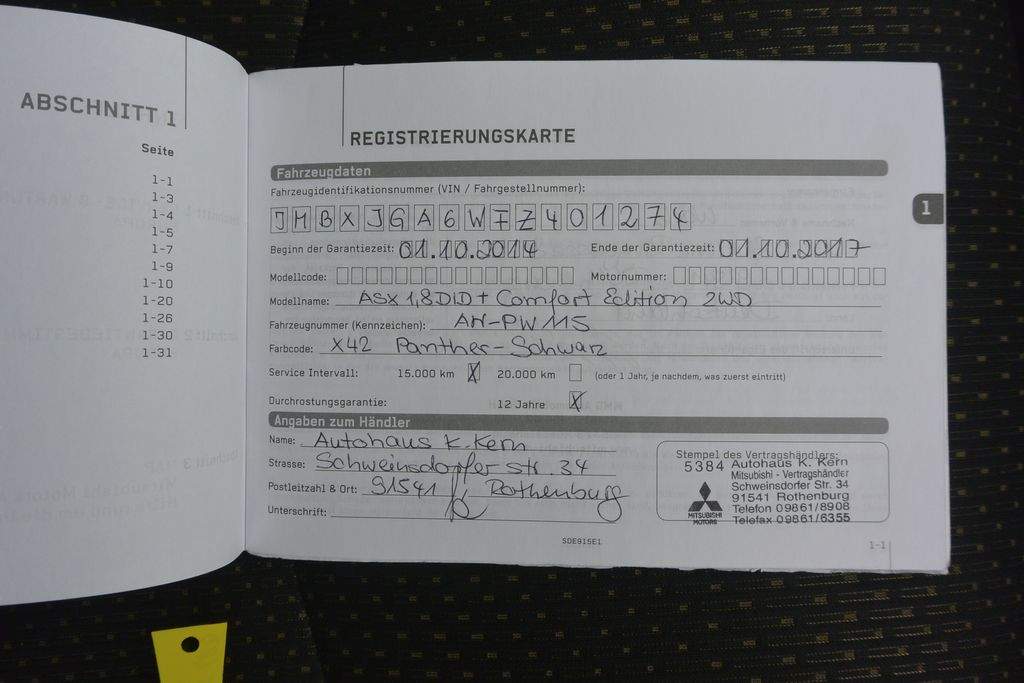 ABSCHNITT 1
Seite
1-1
1-3
1-4
1-5
1-7
1-9
1-10
1-20
1-26
1-30
1-31
REGISTRIERUNGSKARTE
Fahrzeugdaten
Fahrzeugidentifikationsnummer (VIN / Fahrgestellnummer):
JMBXJGA6WFZ401274
Beginn der Garantiezeit: 01.10.2014 Ende der Garantiezeit: 01.10.2017
Modellcode: Motornummer:
Modellname: ASX 1,8 DiD + Comfort Edition 2WD
Fahrzeugnummer (Kennzeichen): AN-PW 115
Farbcode: X42 Panther-Schwarz
Service Intervall: 15.000 km X 20.000 km (oder 1 Jahr, je nachdem, was zuerst eintritt)
Durchrostungsgarantie: 12 Jahre X
Angaben zum Händler
Name: Autohaus K. Kern
Strasse: Schweinsdorfer Str. 34
Postleitzahl & Ort: 91541 Rothenburg
Unterschrift:
Stempel des Vertragshändlers:
5384 Autohaus K. Kern
Mitsubishi - Vertragshändler
Schweinsdorfer Str. 34
91541 Rothenburg
Telefon 09861/8908
Telefax 09861/6355
MITSUBISHI
MOTORS
SDE915E1
1-1
1